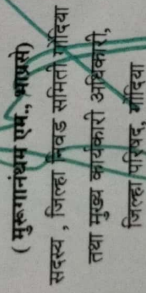 ( मुरूगानंथम एम., भाप्रसे)
सदस्य , जिल्हा निवड समिती गोंदिया
तथा मुख्य कार्यकारी अधिकारी,
जिल्हा परिषद, गोंदिया